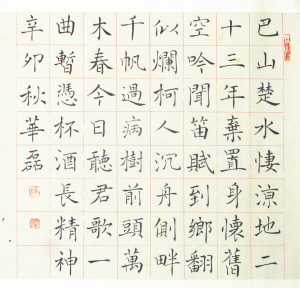 巴山楚水悽涼地二
十三年棄置身懷舊
空吟聞笛賦到鄉翻
似爛柯人沉舟側畔
千帆過病樹前頭萬
木春今日聽君歌一
曲暫憑杯酒長精神
辛卯秋華磊